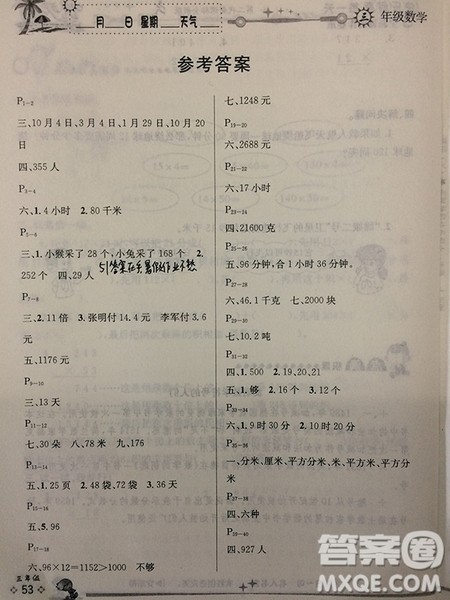 月 日 星期 天气
三 年级数学
参考答案
P1-2
三、10月4日、3月4日、1月29日、10月20
日
四、355人
P3-4
六、1.4小时 2.80千米
P5-6
三、1.小猴采了28个,小兔采了168个 2.
252个 四、29人
P7-8
三、2.11倍 3.张明付14.4元 李军付3.6
元
五、1176元
P9-10
三、13天
P11-12
七、30朵 八、78米 九、176
P13-14
五、1.25页 2.48袋,72袋 4.36天
P15-16
五、5.96
P17-18
六、96×12=1152>1000 不够
七、1248元
P19-20
六、2688元
P21-22
六、17小时
P23-24
四、21600克
P25-26
五、96分钟,合1小时36分钟
P27-28
六、46.1千克 七、2000块
P29-30
七、10.2吨
P31-32
四、1.500 2.19、20、21
P33-34
五、1.够 2.16个 3.12个
P35-36
六、1.9时30分 2.10时20分
P37-38
一、分米、厘米、平方分米、米、平方米、平方分
米
P39-40
四、六种
P41-42
四、927人
三年级
53
答案圈
MXQE.COM